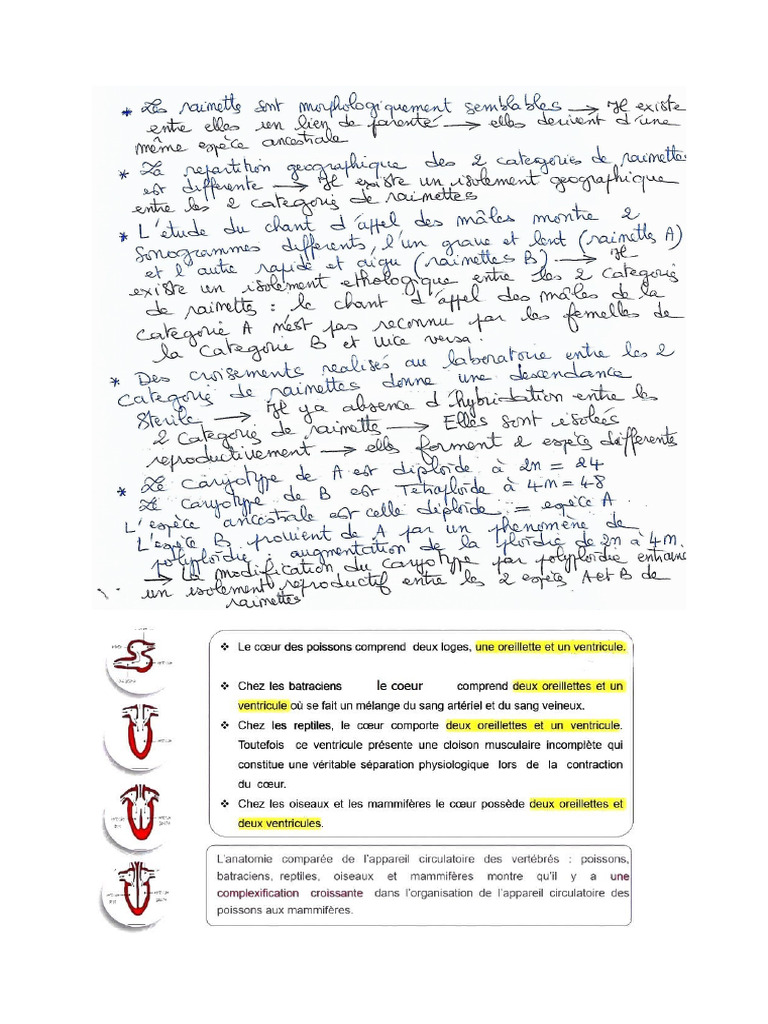 * Les rainettes sont morphologiquement semblables → Il existe
entre elles un lien de parenté → elles derivent d'une
même espèce ancestrale
* La repartition geographique des 2 categories de rainettes
est differente → Il existe un isolement geographique
entre les 2 categoris de rainettes
* L'étude du chant d'appel des mâles montre 2
sonogrammes differents, l'un grave et lent (rainettes A)
et l'autre rapide et aigu (rainettes B) → Il
existe un isolement ethologique entre les 2 categoris
de rainettes : le chant d'appel des mâles de la
categorie A n'est pas reconnu par les femelles de
la categorie B et vice versa.
* Des croisements realisés au laboratoire entre les 2
categoris de rainettes donne une descendance
sterile → Il y a absence d'hybridation entre les
2 categoris de rainettes → Elles sont isolées
reproductivement → elles forment 2 espèces differentes
* Le caryotype de A est diploïde à 2n = 24
Le caryotype de B est Tetraploïde à 4n = 48
L'espèce ancestrale est celle diploïde : = espèce A.
L'espèce B provient de A par un phenomène de
polyploïdie : augmentation de la ploïdie de 2n à 4n.
→ La modification du caryotype par polyploïdie entraine
un isolement reproductif entre les 2 espèces A et B de
rainettes
❖ Le cœur des poissons comprend deux loges, une oreillette et un ventricule.
❖ Chez les batraciens le coeur comprend deux oreillettes et un
ventricule où se fait un mélange du sang artériel et du sang veineux.
❖ Chez les reptiles, le cœur comporte deux oreillettes et un ventricule.
Toutefois ce ventricule présente une cloison musculaire incomplète qui
constitue une véritable séparation physiologique lors de la contraction
du cœur.
❖ Chez les oiseaux et les mammifères le cœur possède deux oreillettes et
deux ventricules.
L'anatomie comparée de l'appareil circulatoire des vertébrés : poissons,
batraciens, reptiles, oiseaux et mammifères montre qu'il y a une
complexification croissante dans l'organisation de l'appareil circulatoire des
poissons aux mammifères.